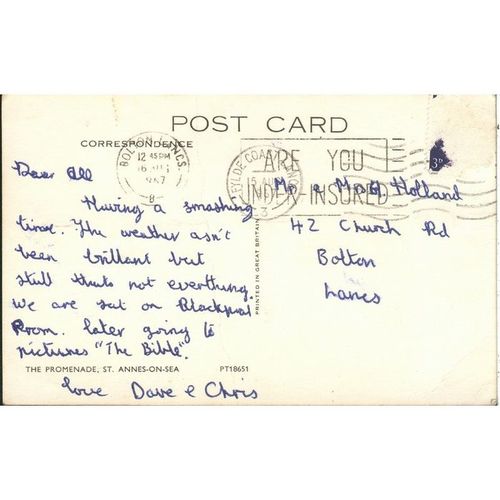 POST CARD
CORRESPONDENCE
BOLTON LANCS
12 45PM
ARE YOU
UNDER-INSURED
3D
Dear All
Having a smashing
time. The weather asn't
been brillant but
still thats not everthing.
We are sat on Blackpool
Prom. later going to
pictures "The Bible".
love Dave & Chris
Mr & Mrs Holland
42 Church Rd
Bolton
Lancs
PRINTED IN GREAT BRITAIN
THE PROMENADE, ST. ANNES-ON-SEA PT18651